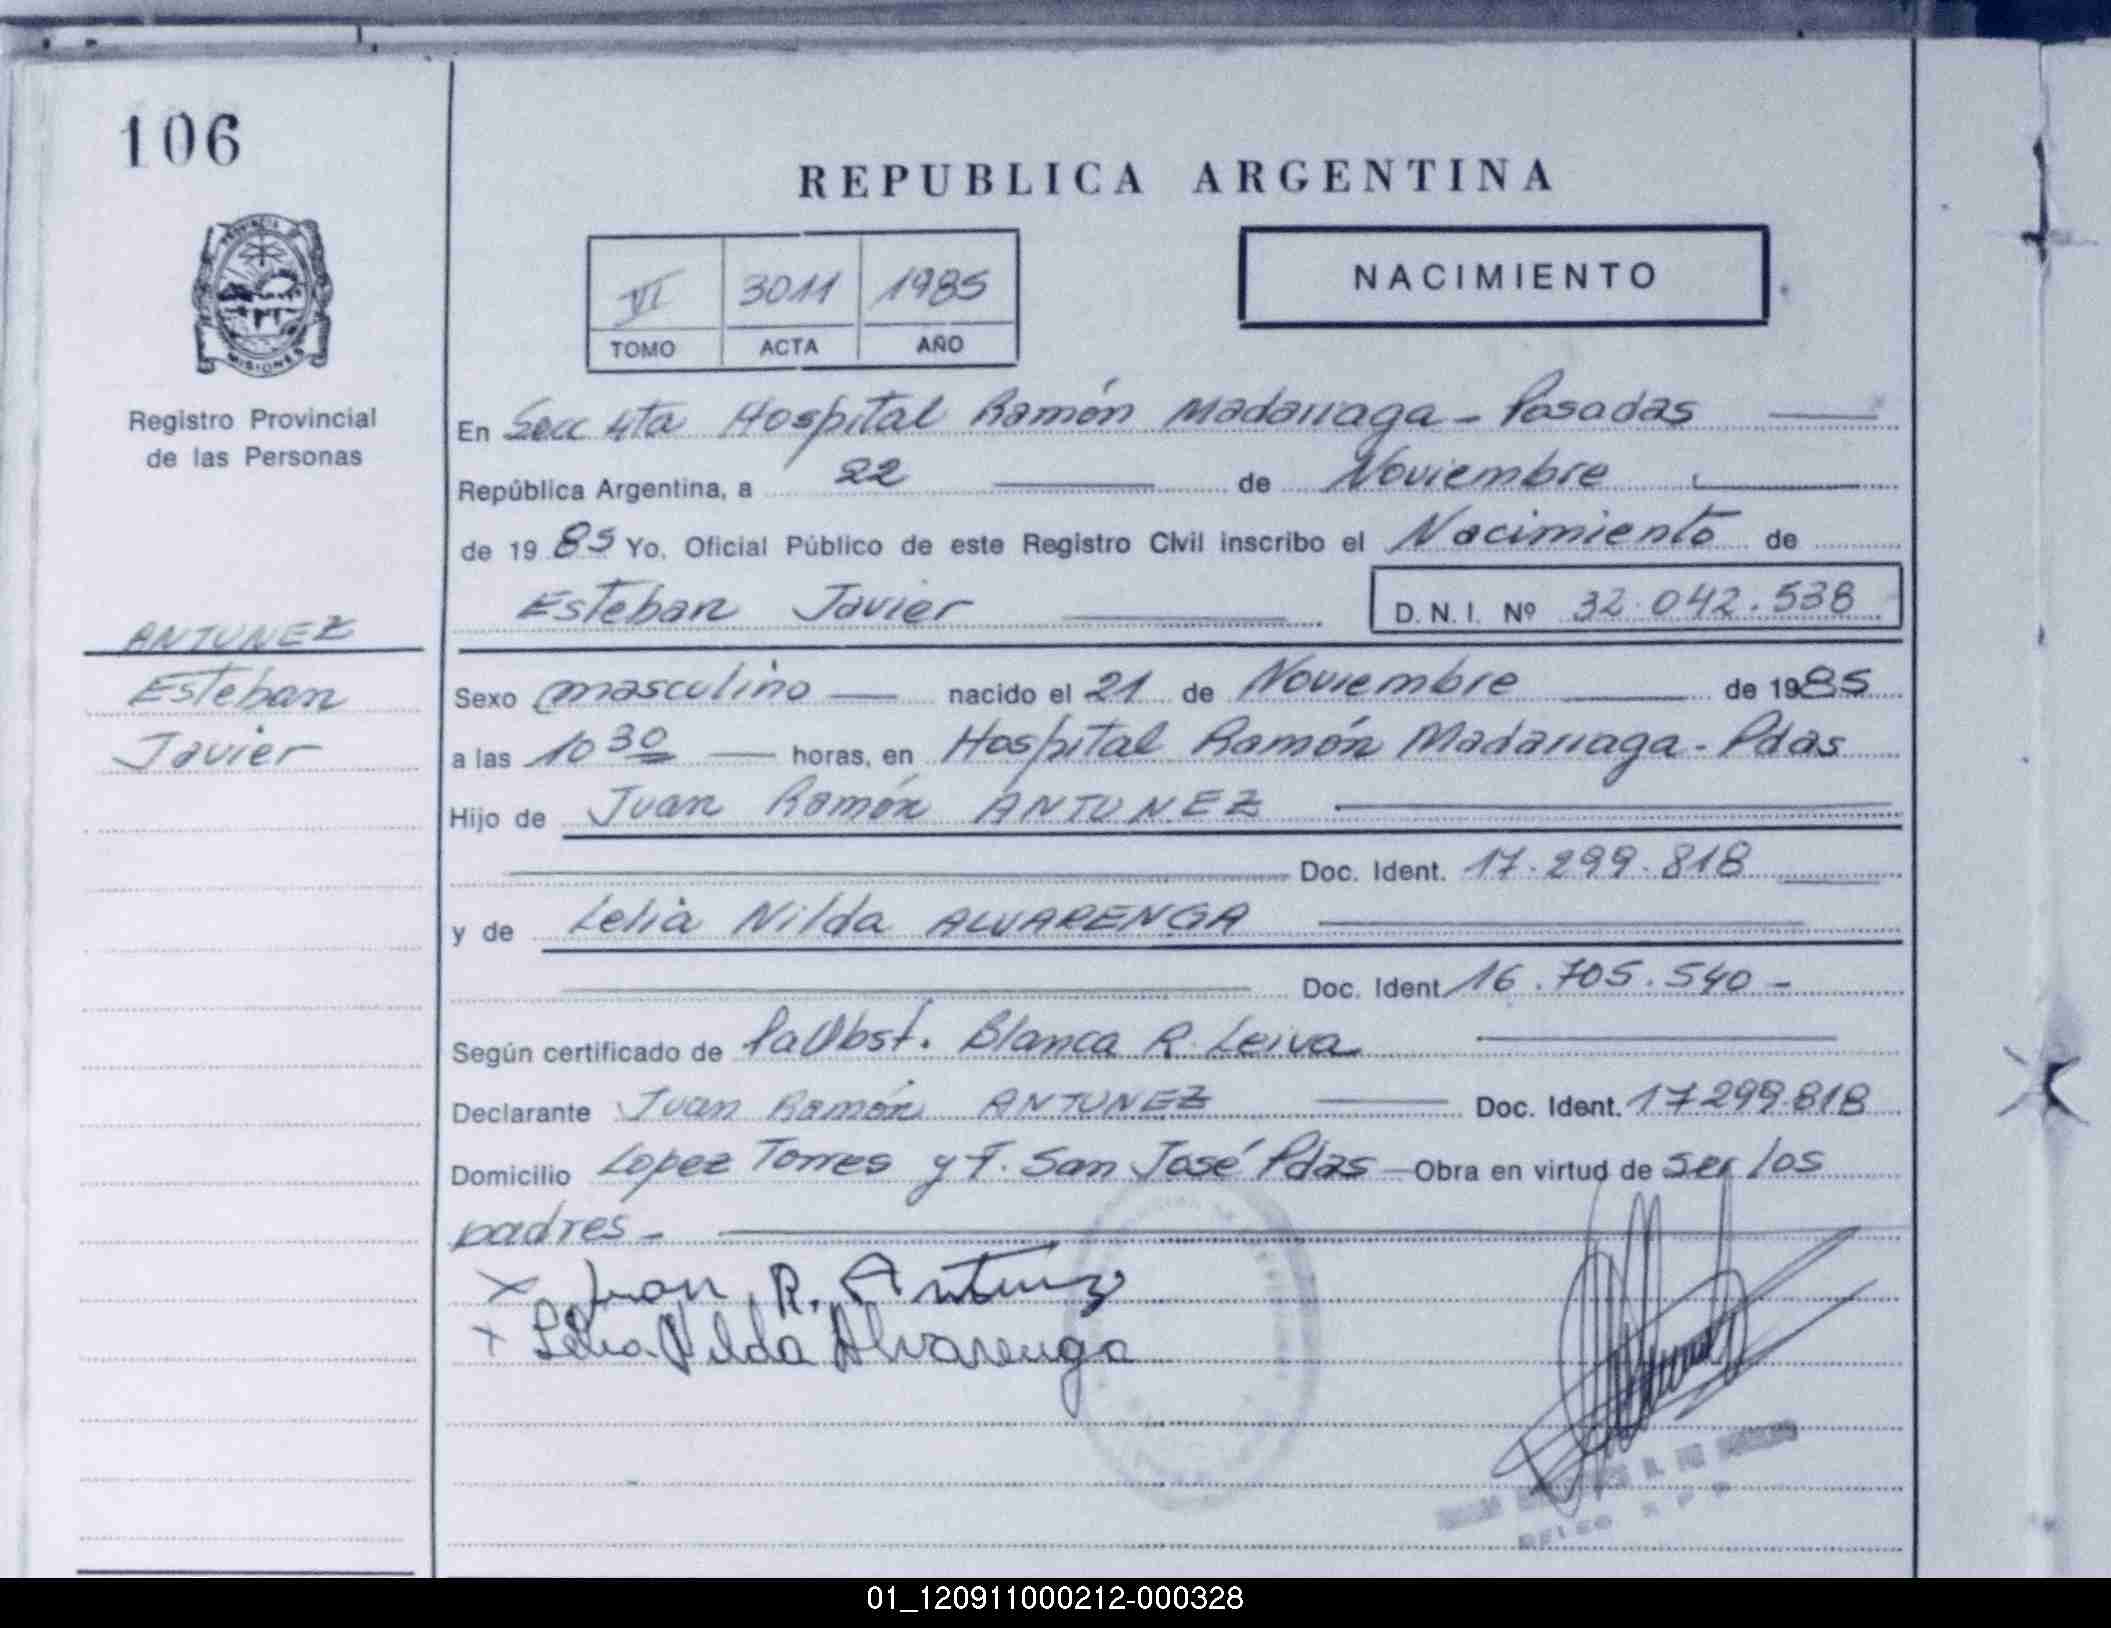 106
REPUBLICA ARGENTINA
PROVINCIA DE
MISIONES
VI 3011 1985
TOMO ACTA AÑO
NACIMIENTO
Registro Provincial
de las Personas
En Secc 4ta Hospital Ramón Madariaga - Posadas
República Argentina, a 22 de Noviembre
de 1985 Yo, Oficial Público de este Registro Civil inscribo el Nacimiento de
Esteban Javier D.N.I. Nº 32.042.538
ANTUNEZ
Esteban
Javier
Sexo masculino nacido el 21 de Noviembre de 1985
a las 10 30 horas, en Hospital Ramón Madariaga - Pdas
Hijo de Juan Ramón ANTUNEZ
Doc. Ident. 17.299.818
y de Lelia Nilda ALVARENGA
Doc. Ident. 16.705.540 -
Según certificado de la Obst. Blanca R. Leiva
Declarante Juan Ramón ANTUNEZ Doc. Ident. 17299.818
Domicilio Lopez Torres y F. San José Pdas Obra en virtud de ser los
padres -
x Juan R. Antunez
x Lelia Nilda Alvarenga
01_120911000212-000328